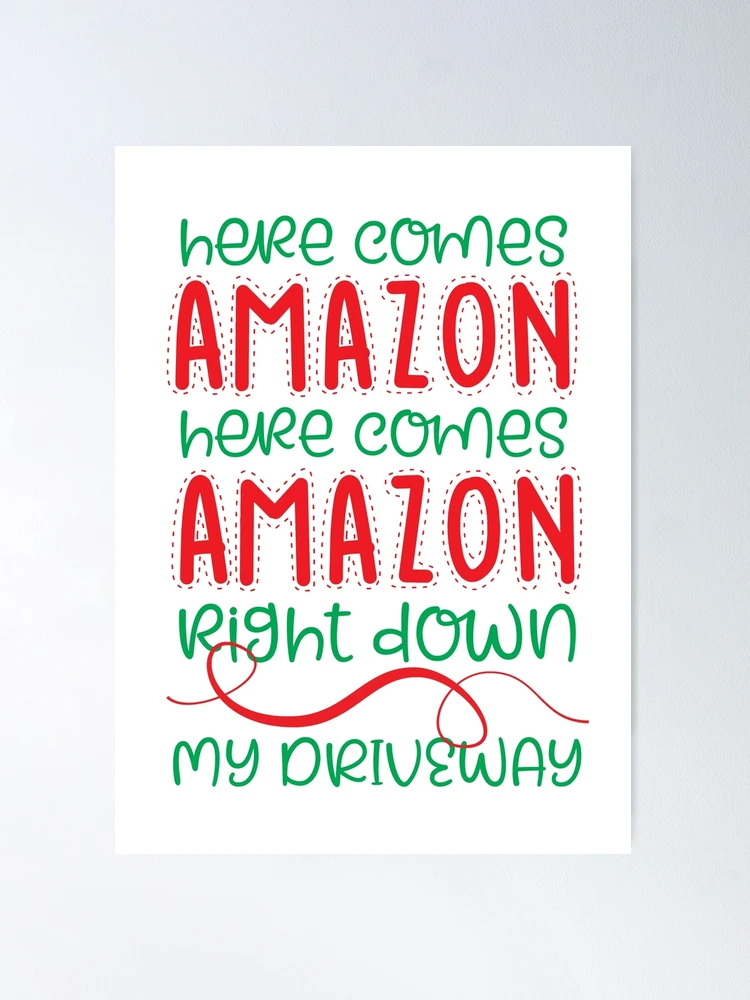 here comes
AMAZON
here comes
AMAZON
Right down
my DRIVEWAY